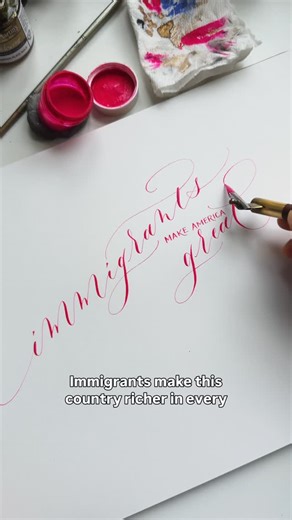 immigrants
MAKE AMERICA
great
Immigrants make this
country richer in every